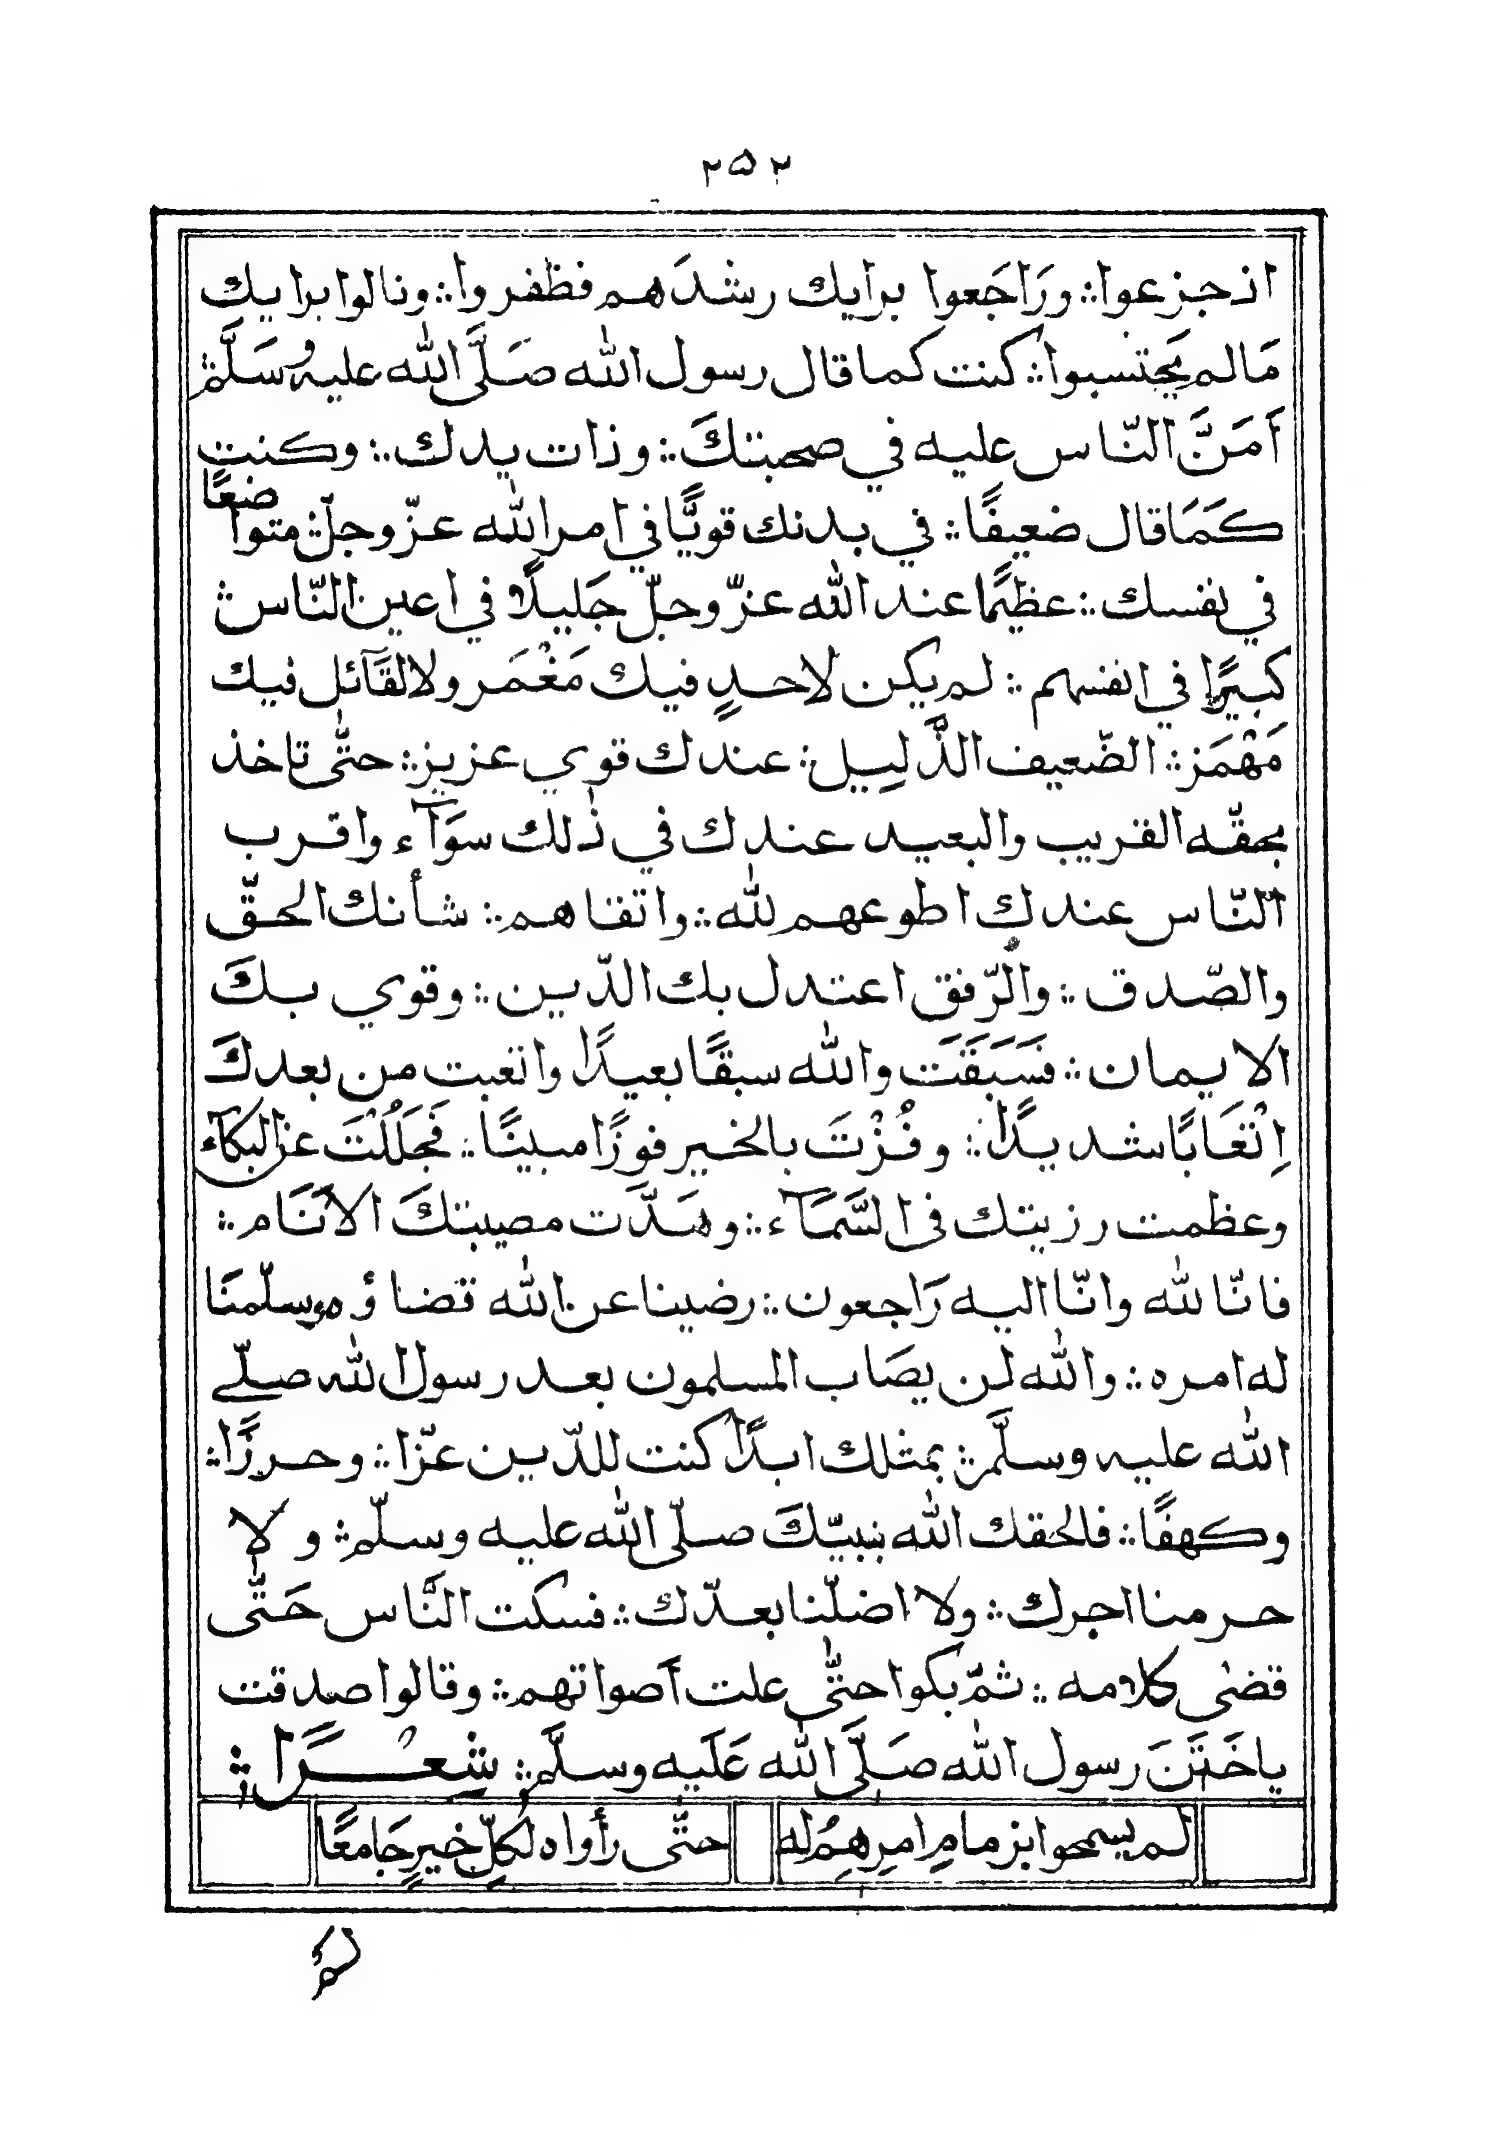 ٢٥٢
اذ جزعوا؞ ورَاجَعوا برأيك رشدَهم فظفروا؞ ونالوا برايك
مَالم يَحتسبوا؞ كنت كما قال رسول الله صَلَّى الله عليه وسَلَّم؞
أمَنَّ النّاس عليه في صحبتكَ؞ وذات يدك؞ وكنت
كمَا قال ضعيفًا؞ في بدنك قويًّا في امر الله عزّ وجلّ؞ متواضعًا
في نفسك؞ عظيمًا عند الله عزّ وجلّ جَليلًا في اعين النّاس؞
كبيرًا في انفسهم؞ لم يكن لاحدٍ فيك مَغْمَر ولا لقَآئل فيك
مَهْمَز؞ الضّعيف الذَّلِيل؞ عندك قوي عزيز؞ حتّى تاخذ
بحقّه القريب والبعيد عندك في ذٰلك سوَآء واقرب
النّاس عندك اطوعهم لله؞ واتقاهم؞ شأنك الحقّ
والصّدق؞ والرّفق اعتدل بك الدّين؞ وقوي بكَ
الايمان؞ فسَبَقَت والله سبقًا بعيدًا واتعبت من بعدكَ
اِتْعَابًا شديدًا؞ وفُزْتَ بالخير فوزًا مبينًا؞ فَجَلَلْتَ عن البكآء
وعظمت رزيتك فى السَّمَآء؞ وهَدَّت مصيبتكَ الاَنَام؞
فانّا لله وانّا اليه رَاجعون؞ رضينا عن الله قضاؤه وسلّمنَا
له امره؞ والله لن يصَاب المسلمون بعد رسول الله صلّے
الله عليه وسلَّم؞ بمثلك ابدًا كنت للدّين عزّا؞ وحرزًا؞
وكهفًا؞ فالحقك الله بنبيّكَ صلّى الله عليه وسلّم؞ ولا
حرمنا اجرك؞ ولا اضلّنا بعدّك؞ فسكت النَّاس حَتّى
قضٰى كلامه؞ ثمّ بكوا حتّى علت أصواتهم؞ وقالوا صدقت
ياخَتَنَ رسول الله صَلَّى الله عَلَيه وسلَّم؞ شِعْرًا؞
لم يسمحوا بزمامِ امرِهِمُ له حتّى رأواه لكلّ خيرٍ جَامعًا